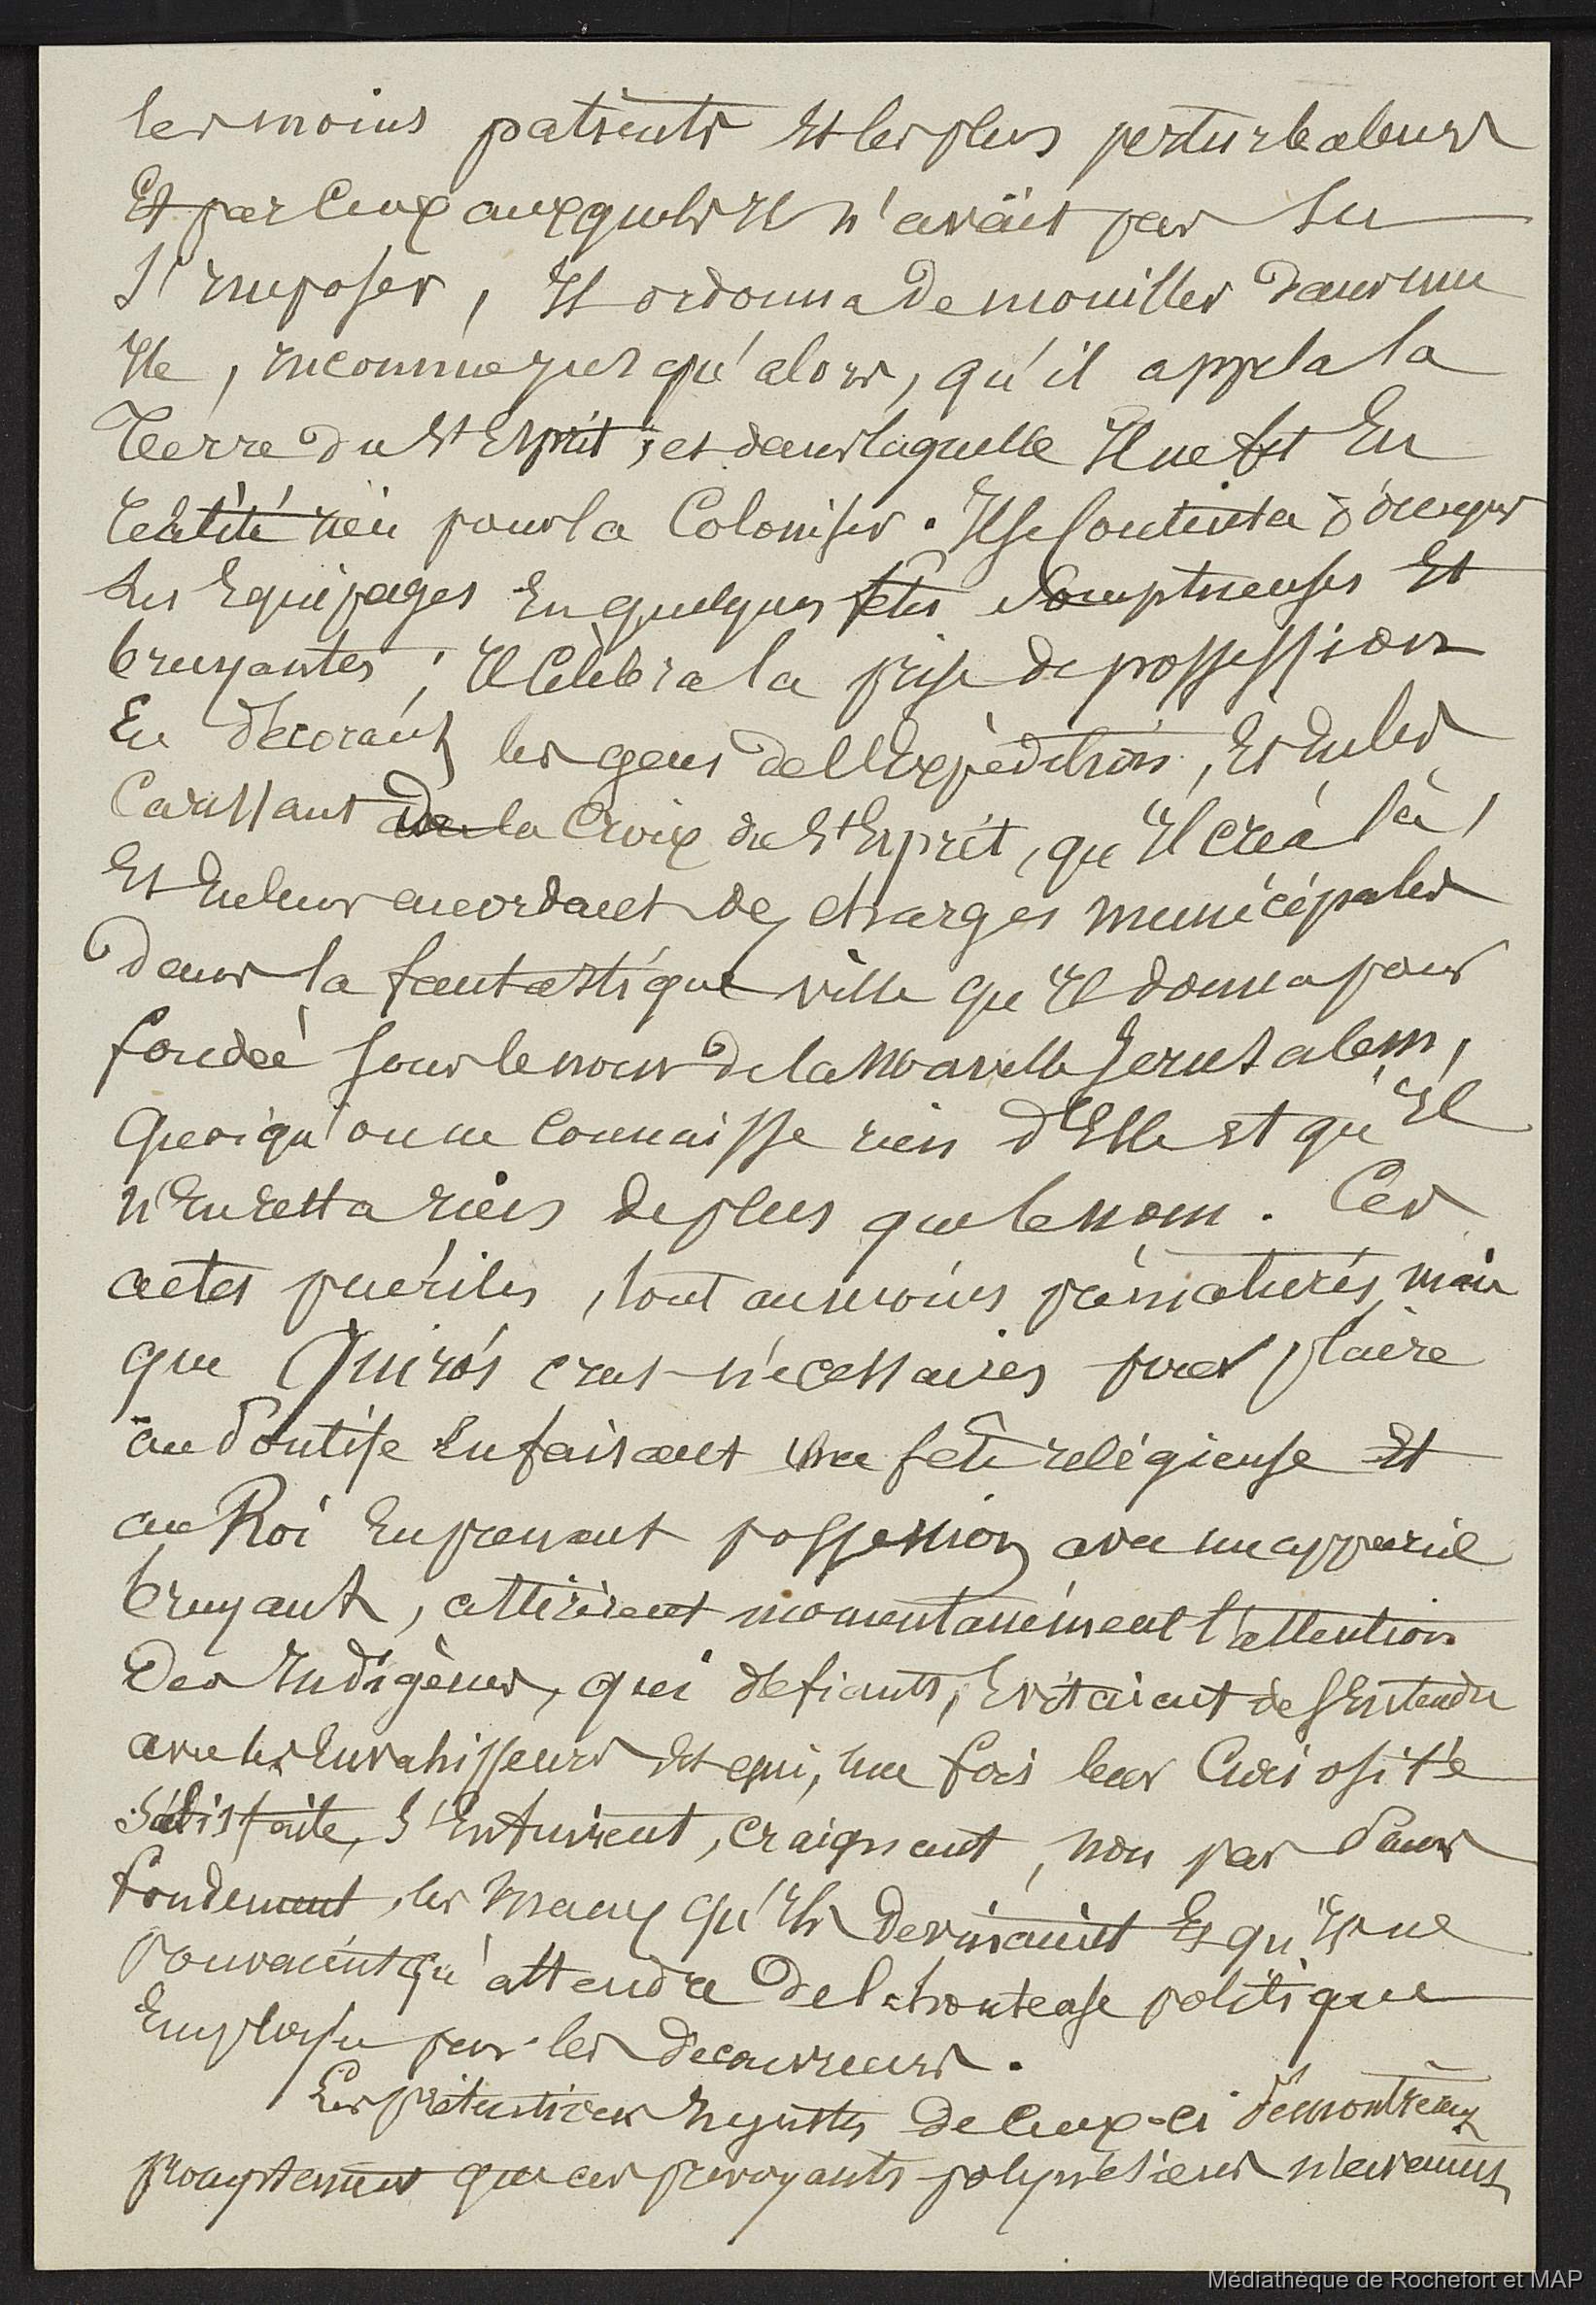 les moins patients Et les plus perturbateurs
Et par Ceux auxquels Il n'avait pas su
S'imposer, Il ordonna De mouiller Dans une
Ile, inconnue jusqu'alors, qu'il appela la
Terre Du St Esprit ; et dans laquelle Il ne fit En
réalité rien pour la Coloniser. Il se Contenta d'occuper
Ses Equipages En quelques fêtes somptueuses Et
bruyantes ; Il Célébra la prise de possession
En décorant les gens de l'Expédition, Et En les
Caressant de la Croix du St Esprit, qu'Il créa là,
Et En leur accordant des charges municipales
Dans la fantastique ville qu'Il donna pour
fondée sous le nom De la Nouvelle Jerusalem,
Quoiqu'on ne Connaisse rien d'Elle et qu'Il
n'En resta rien de plus que le nom. Ces
actes puérils, tout au moins prématurés, mais
que Quirós crut nécessaires pour plaire
au Pontife En faisant une fête religieuse Et
au Roi En prenant possession avec un appareil
bruyant, attirèrent momentanément l'attention
Des Indigènes, qui défiants, Evitaient de s'Entendre
avec les Envahisseurs Et qui, une fois leur Curiosité
Satisfaite, s'Enfuirent, craignant, non pas Sans
fondement, les maux qu'Ils devinaient Et qu'Ils ne
Pouvaient qu'attendre De la honteuse politique
Employée par les découvreurs.
Les prétentions Injustes de Ceux-ci démontrèrent
promptement que ces prévoyants polynésiens n'avaient